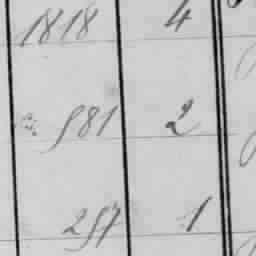 1818 4
581 2
257 1